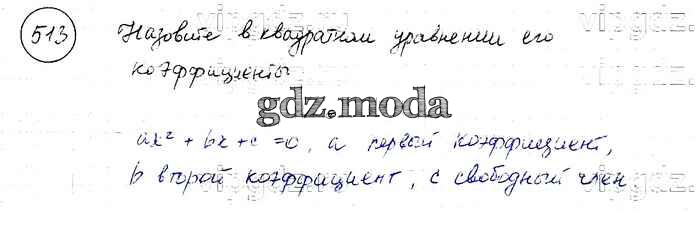 513 Назовите в квадратном уравнении его
коэффициенты
gdz.moda
ax² + bx + c = 0, a первый коэффициент,
b второй коэффициент, c свободный член
vipgdz.ru
vipgdz.ru
vipgdz.ru
vipgdz.